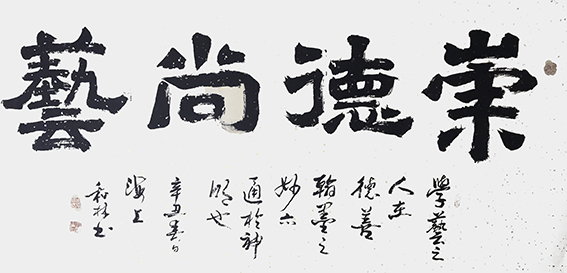 崇德尚藝
學藝之
人在
德善
翰墨之
妙亦
通於神
明也
辛丑春日
海上
书